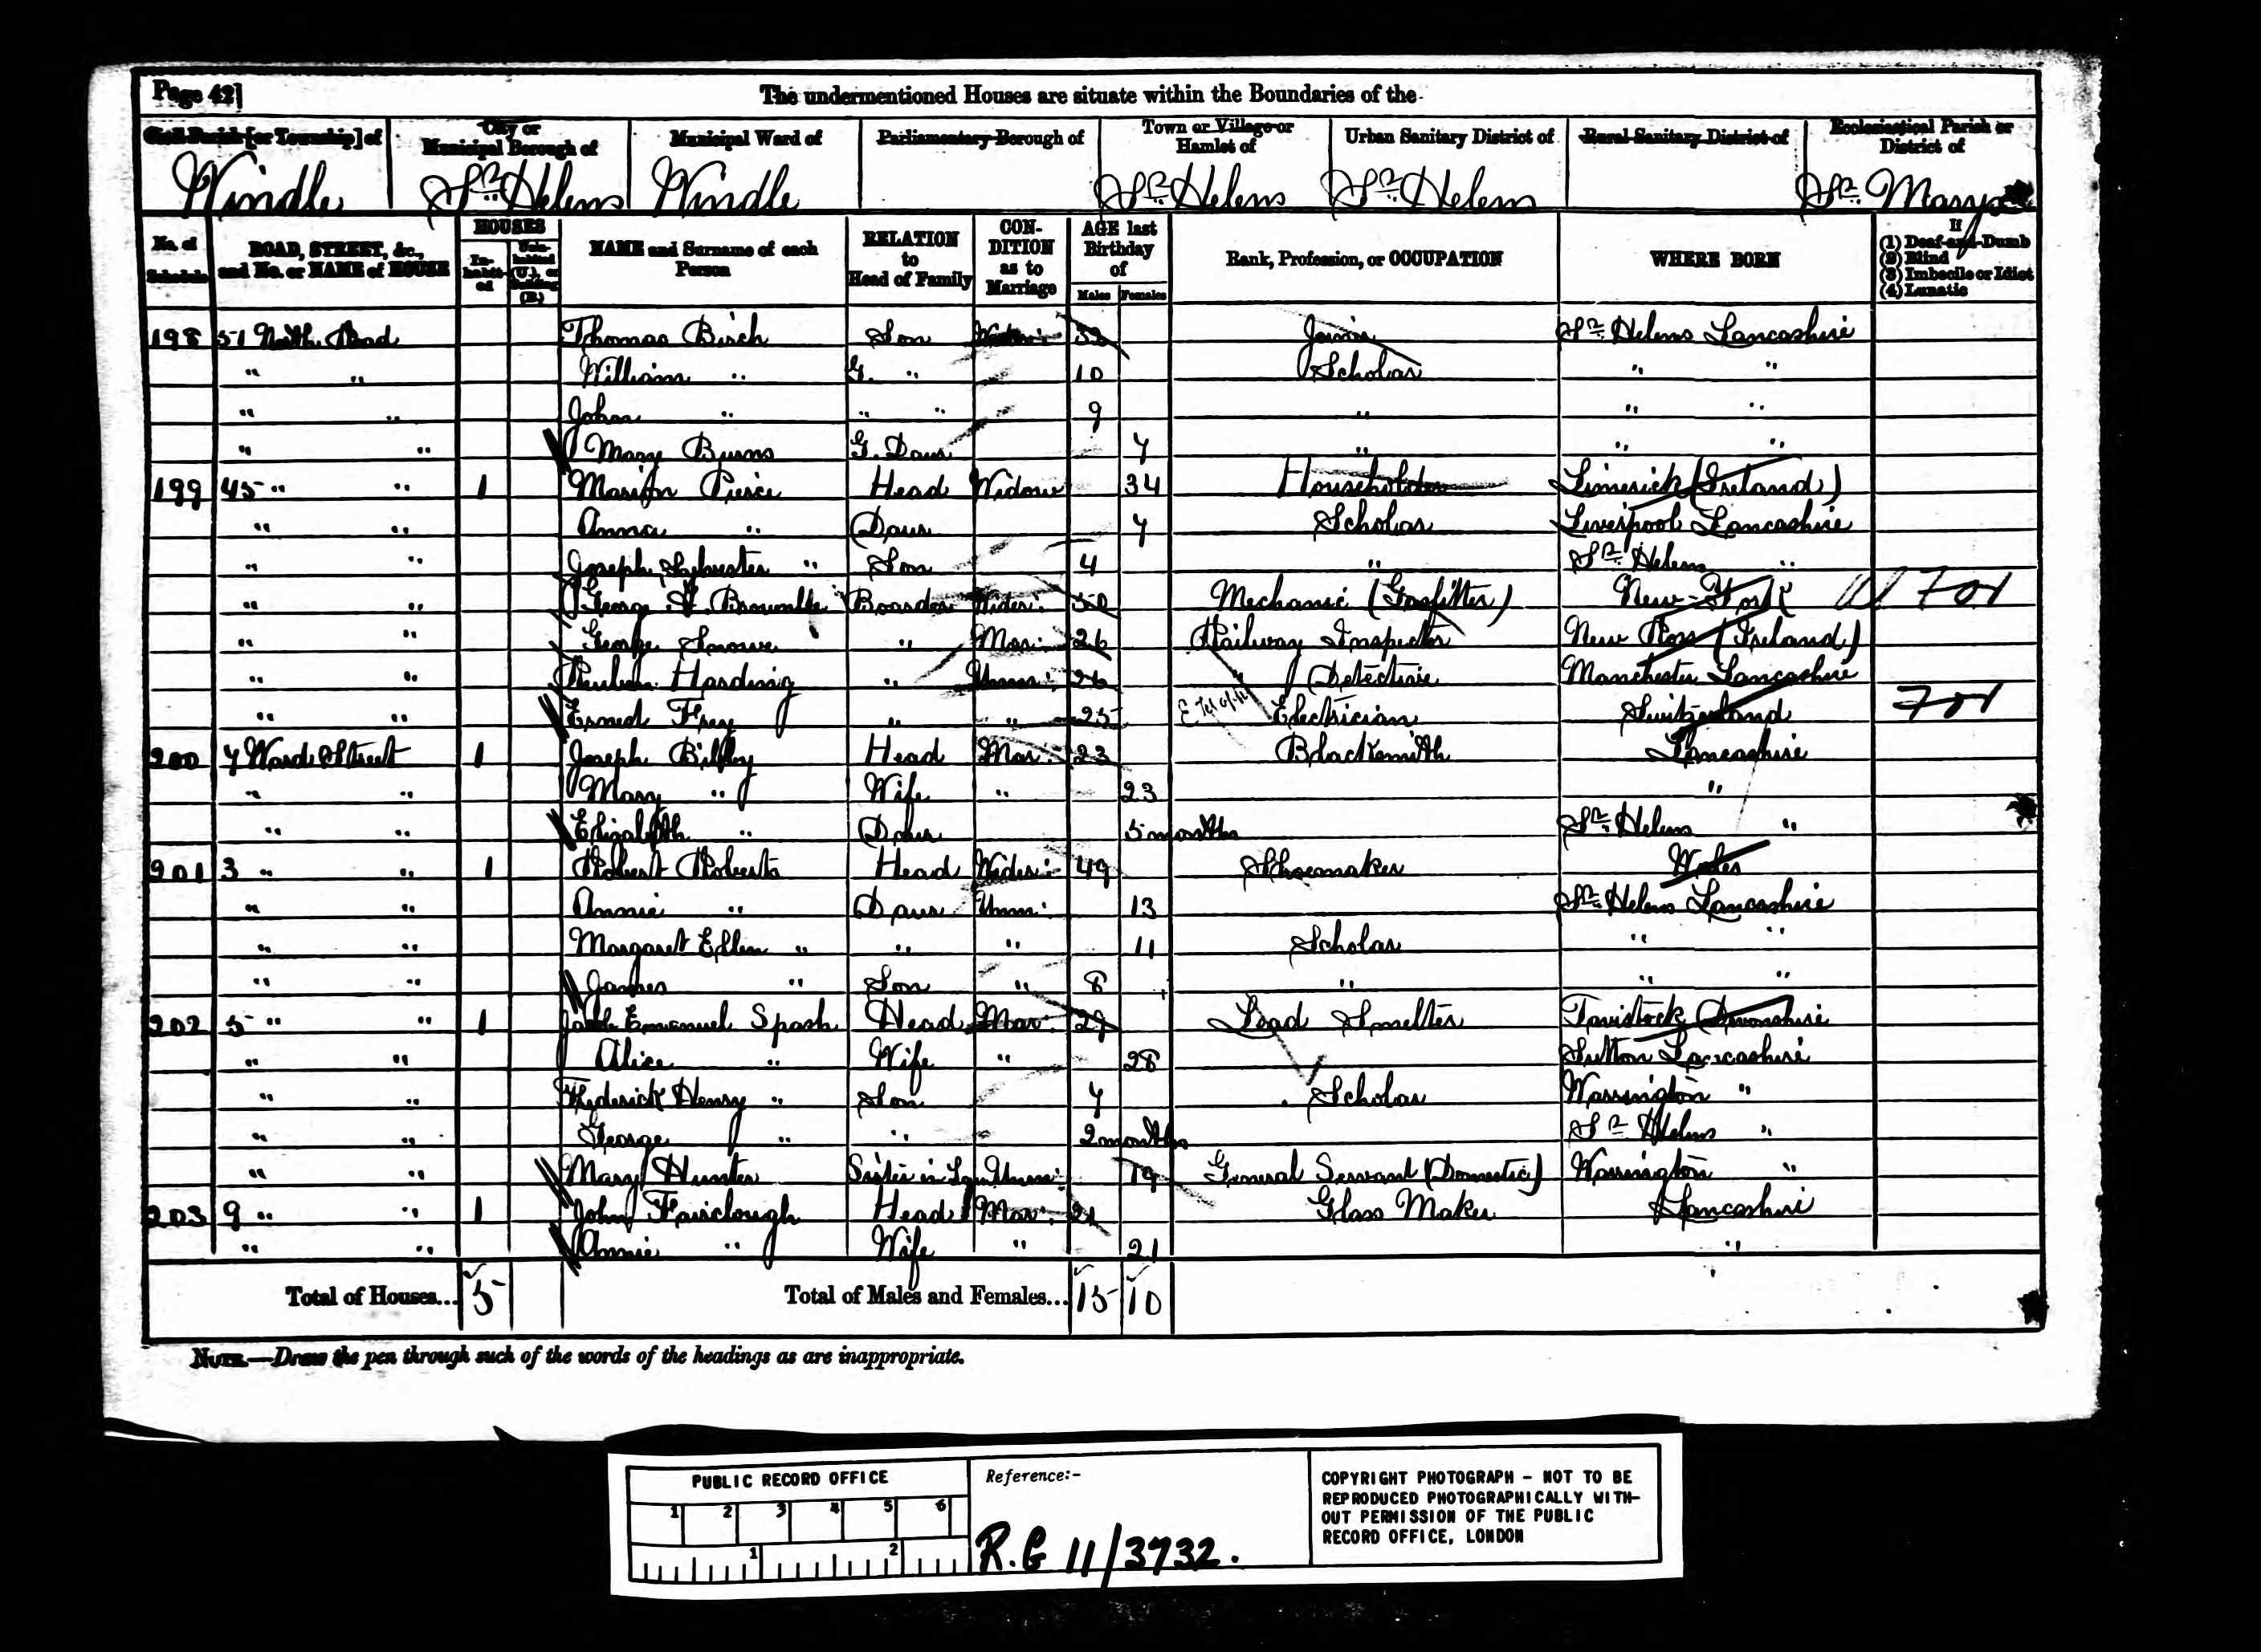 Page 42]
The undermentioned Houses are situate within the Boundaries of the
Civil Parish [or Township] of
City or Municipal Borough of
Municipal Ward of
Parliamentary Borough of
Town or Village or Hamlet of
Urban Sanitary District of
Rural Sanitary District of
Ecclesiastical Parish or District of
Windle St. Helens Windle St. Helens St. Helens St. Marys
No. of Schedule
ROAD, STREET, &c., and No. or NAME of HOUSE
HOUSES
In-habit-ed
Unin-habited (U.), or Building (B.)
NAME and Surname of each Person
RELATION to Head of Family
CON-DITION as to Marriage
AGE last Birthday of
Males Females
Rank, Profession, or OCCUPATION
WHERE BORN
If
(1) Deaf-and-Dumb
(2) Blind
(3) Imbecile or Idiot
(4) Lunatic
198 51 North Road Thomas Birch Son Wider: 32 Joiner St. Helens Lancashire
" " William " G. " 10 Scholar " "
" " John " " " 9 " " "
" " Mary Burns G. Daur 7 " " "
199 45 " " 1 Marion Pierce Head Widow 34 Householder Limerick (Ireland)
" " Anna " Daur 7 Scholar Liverpool Lancashire
" " Joseph Sylvester " Son 4 " St. Helens "
" " George Brumble Boarder Wider: 50 Mechanic (Gasfitter) New-York 701
" " George Snowe " Mar: 26 Railway Inspector New Ross (Ireland)
" " Reuben Harding " Unm: 26 Detective Manchester Lancashire
" " Ernest Frey " " 25 Electrician Switzerland 701
200 7 Ward Street 1 Joseph Bilby Head Mar: 23 Blacksmith Lancashire
" " Mary " Wife " 23 "
" " Elizabeth " Daur 5 months St. Helens "
201 3 " " 1 Robert Roberts Head Wider: 49 Shoemaker Wales
" " Annie " Daur Unm: 13 St. Helens Lancashire
" " Margaret Ellen " " " 11 Scholar " "
" " James " Son " 8 " " "
202 5 " " 1 Jacob Emanuel Spash Head Mar: 29 Lead Smelter Tavistock Devonshire
" " Alice " Wife " 28 Sutton Lancashire
" " Frederick Henry " Son 7 Scholar Warrington "
" " George " " 2 months St. Helens "
" " Mary Hunter Sister in Law Unm: 19 General Servant (Domestic) Warrington "
203 9 " " 1 John Fairclough Head Mar: 21 Glass Maker Lancashire
" " Annie " Wife " 21 "
Total of Houses... 5 Total of Males and Females... 15 10
NOTE.—Draw the pen through such of the words of the headings as are inappropriate.
PUBLIC RECORD OFFICE
1 2 3 4 5 6
1 2
Reference:-
R.G 11/3732.
COPYRIGHT PHOTOGRAPH - NOT TO BE
REPRODUCED PHOTOGRAPHICALLY WITH-
OUT PERMISSION OF THE PUBLIC
RECORD OFFICE, LONDON